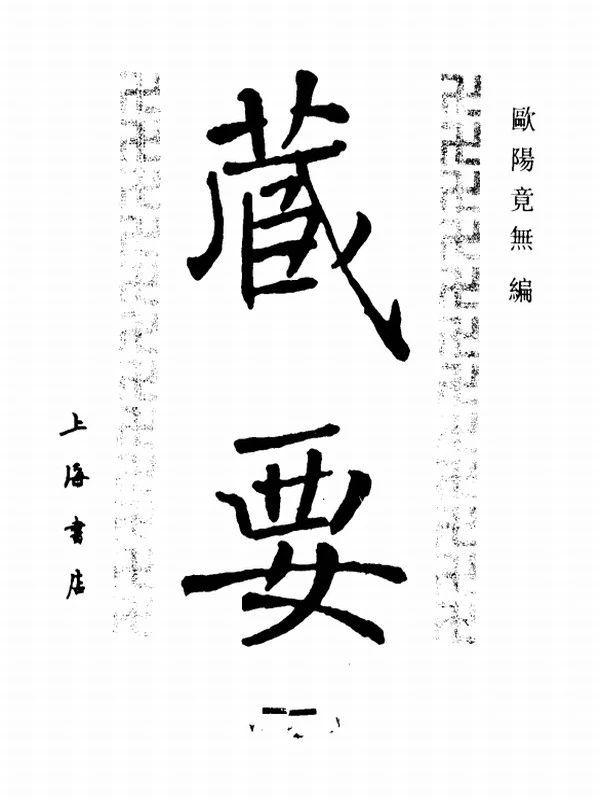 歐陽竟無 編
藏要
上海書店